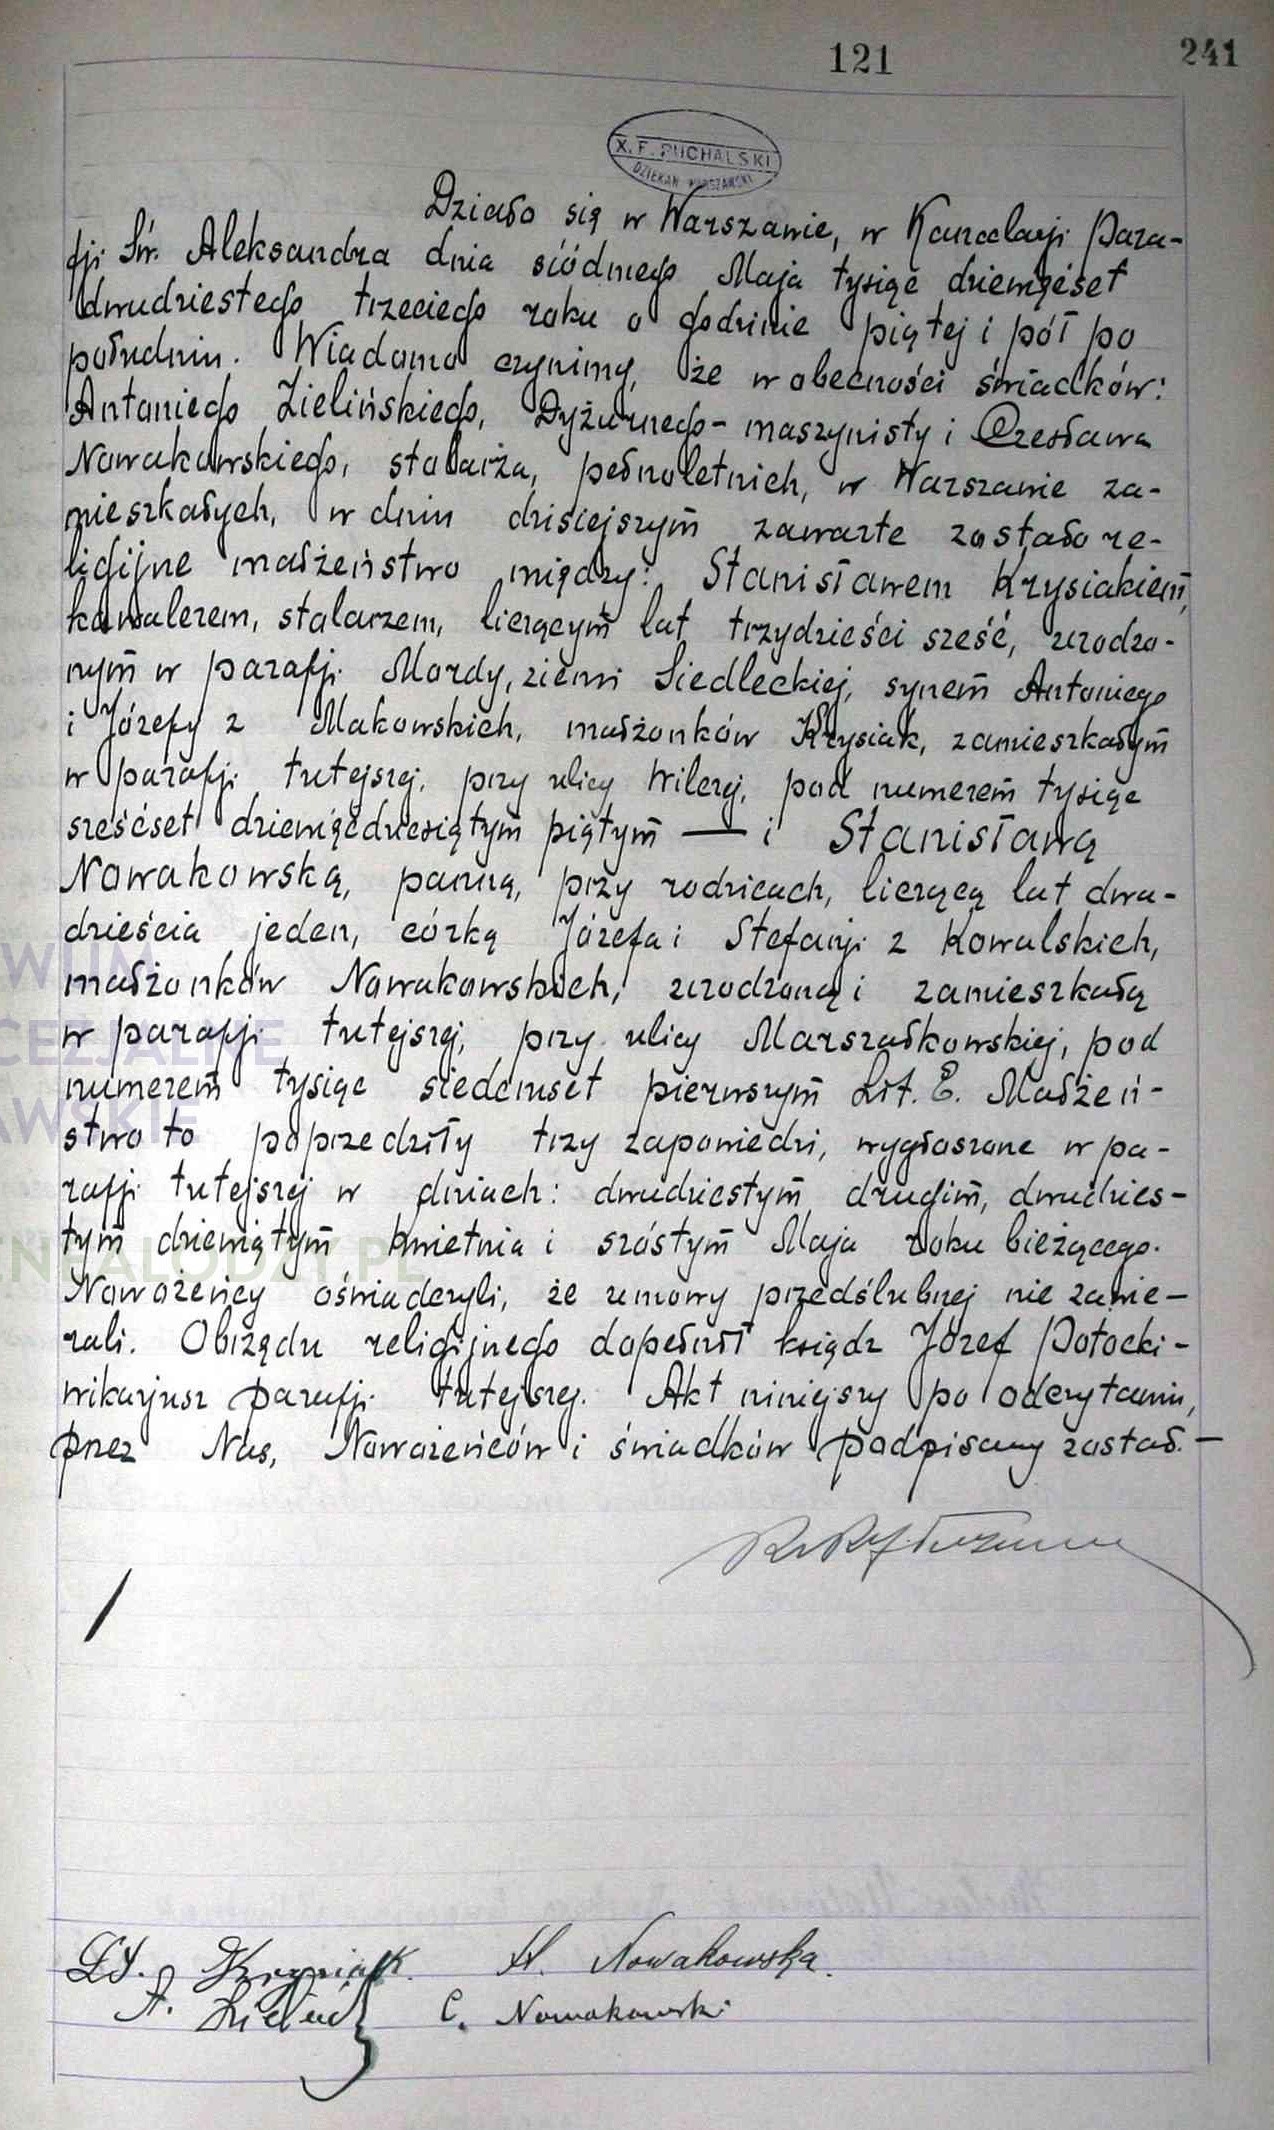 121
241
X. F. PUCHALSKI
DZIEKAN WARSZAWSKI
Działo się w Warszawie, w Kancelarji Para-
fji Św. Aleksandra dnia siódmego Maja tysiąc dziewięćset
dwudziestego trzeciego roku o godzinie piątej i pół po
południu. Wiadomo czynimy, że w obecności świadków:
Antoniego Zielińskiego, Dyżurnego-maszynisty i Czesława
Nowakowskiego, stolarza, pełnoletnich, w Warszawie za-
mieszkałych, w dniu dzisiejszym zawarte zostało re-
ligijne małżeństwo między: Stanisławem Krysiakiem,
kawalerem, stolarzem, liczącym lat trzydzieści sześć, urodzo-
nym w parafji Mordy, ziemi Siedleckiej, synem Antoniego
i Józefy z Makowskich, małżonków Krysiak, zamieszkałym
w parafji tutejszej, przy ulicy Wilczej, pod numerem tysiąc
sześćset dziewięćdziesiątym piątym — i Stanisławą
Nowakowską, panną, przy rodzicach, liczącą lat dwa-
dzieścia jeden, córką Józefa i Stefanji z Kowalskich,
małżonków Nowakowskich, urodzoną i zamieszkałą
w parafji tutejszej, przy ulicy Marszałkowskiej, pod
numerem tysiąc siedemset pierwszym Lit. E. Małżeń-
stwo to poprzedziły trzy zapowiedzi, wygłoszone w pa-
rafji tutejszej w dniach: dwudziestym drugim, dwudzies-
tym dziewiątym kwietnia i szóstym Maja roku bieżącego.
Nowożeńcy oświadczyli, że umowy przedślubnej nie zawie-
rali. Obrzędu religijnego dopełnił ksiądz Józef Potocki-
wikarjusz parafji tutejszej. Akt niniejszy po odczytaniu,
przez Nas, Nowożeńców i świadków podpisany został. —
St. Krysiak. St. Nowakowska.
A. C. Nowakowski